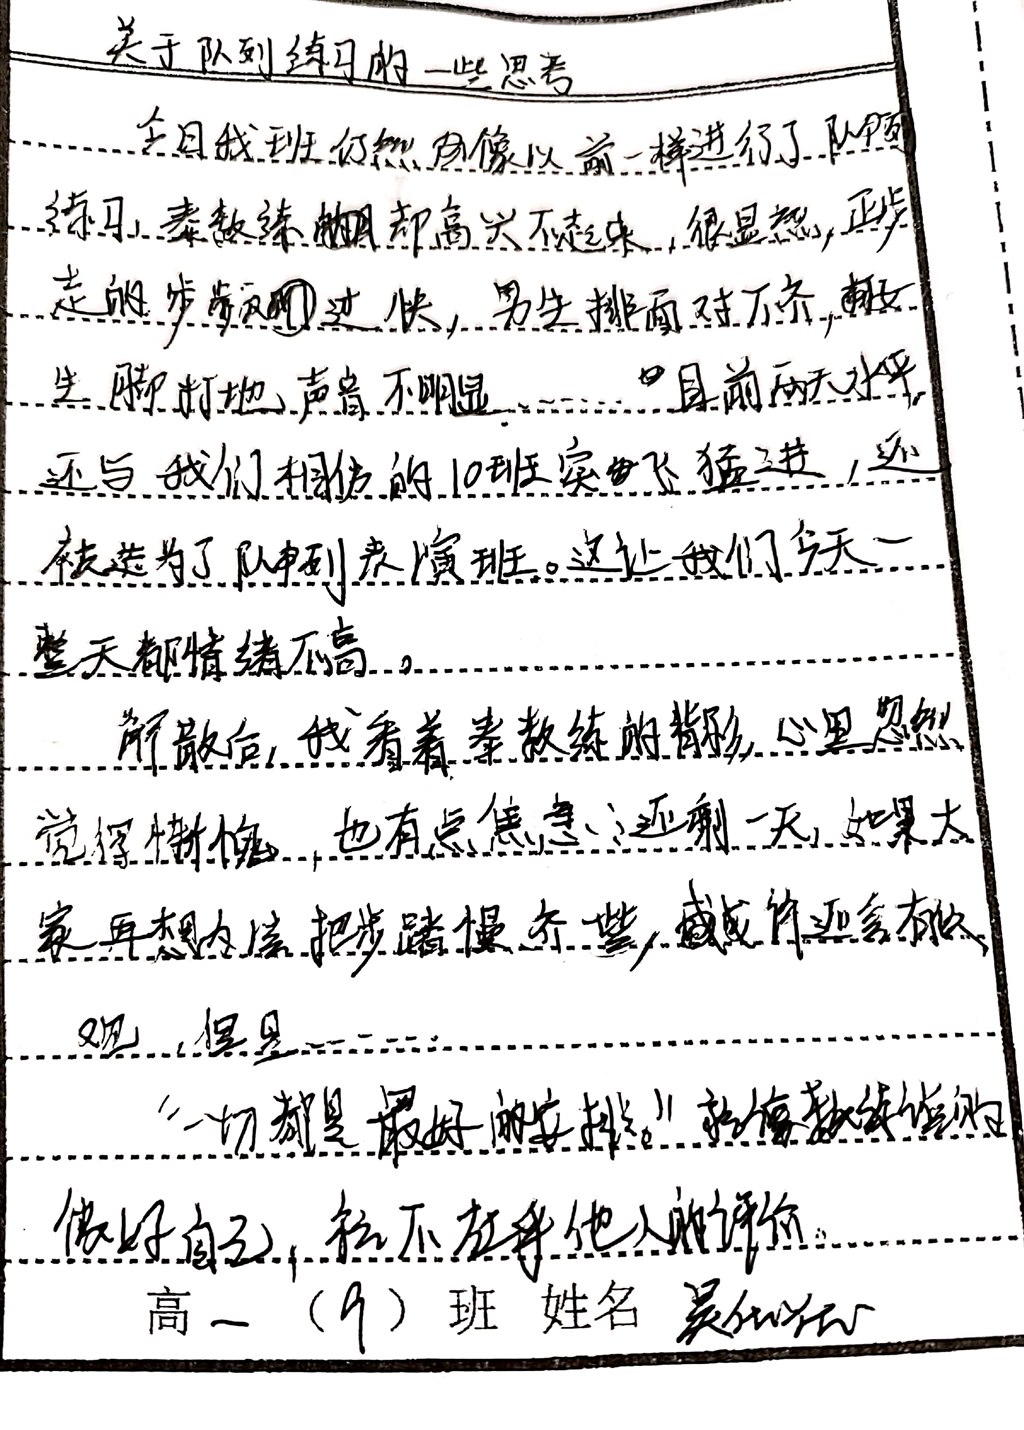 关于队列练习的一些思考
今日我班仍然像以前一样进行了队列
练习,秦教练却高兴不起来,很显然,正步
走的步速过快,男生排面对不齐,女
生脚打地声音不明显……目前两天水平
还与我们相仿的10班突飞猛进,还
被选为了队列表演班。这让我们今天一
整天都情绪不高。
解散后,我看着秦教练的背影,心里忽然
觉得惭愧,也有点焦急:还剩一天,如果大
家再想办法把步踏慢齐一些,或许还会有改
观,但是……
“一切都是最好的安排。”就像教练说的
做好自己,就不在乎他人的评价。
高一(9)班 姓名 吴